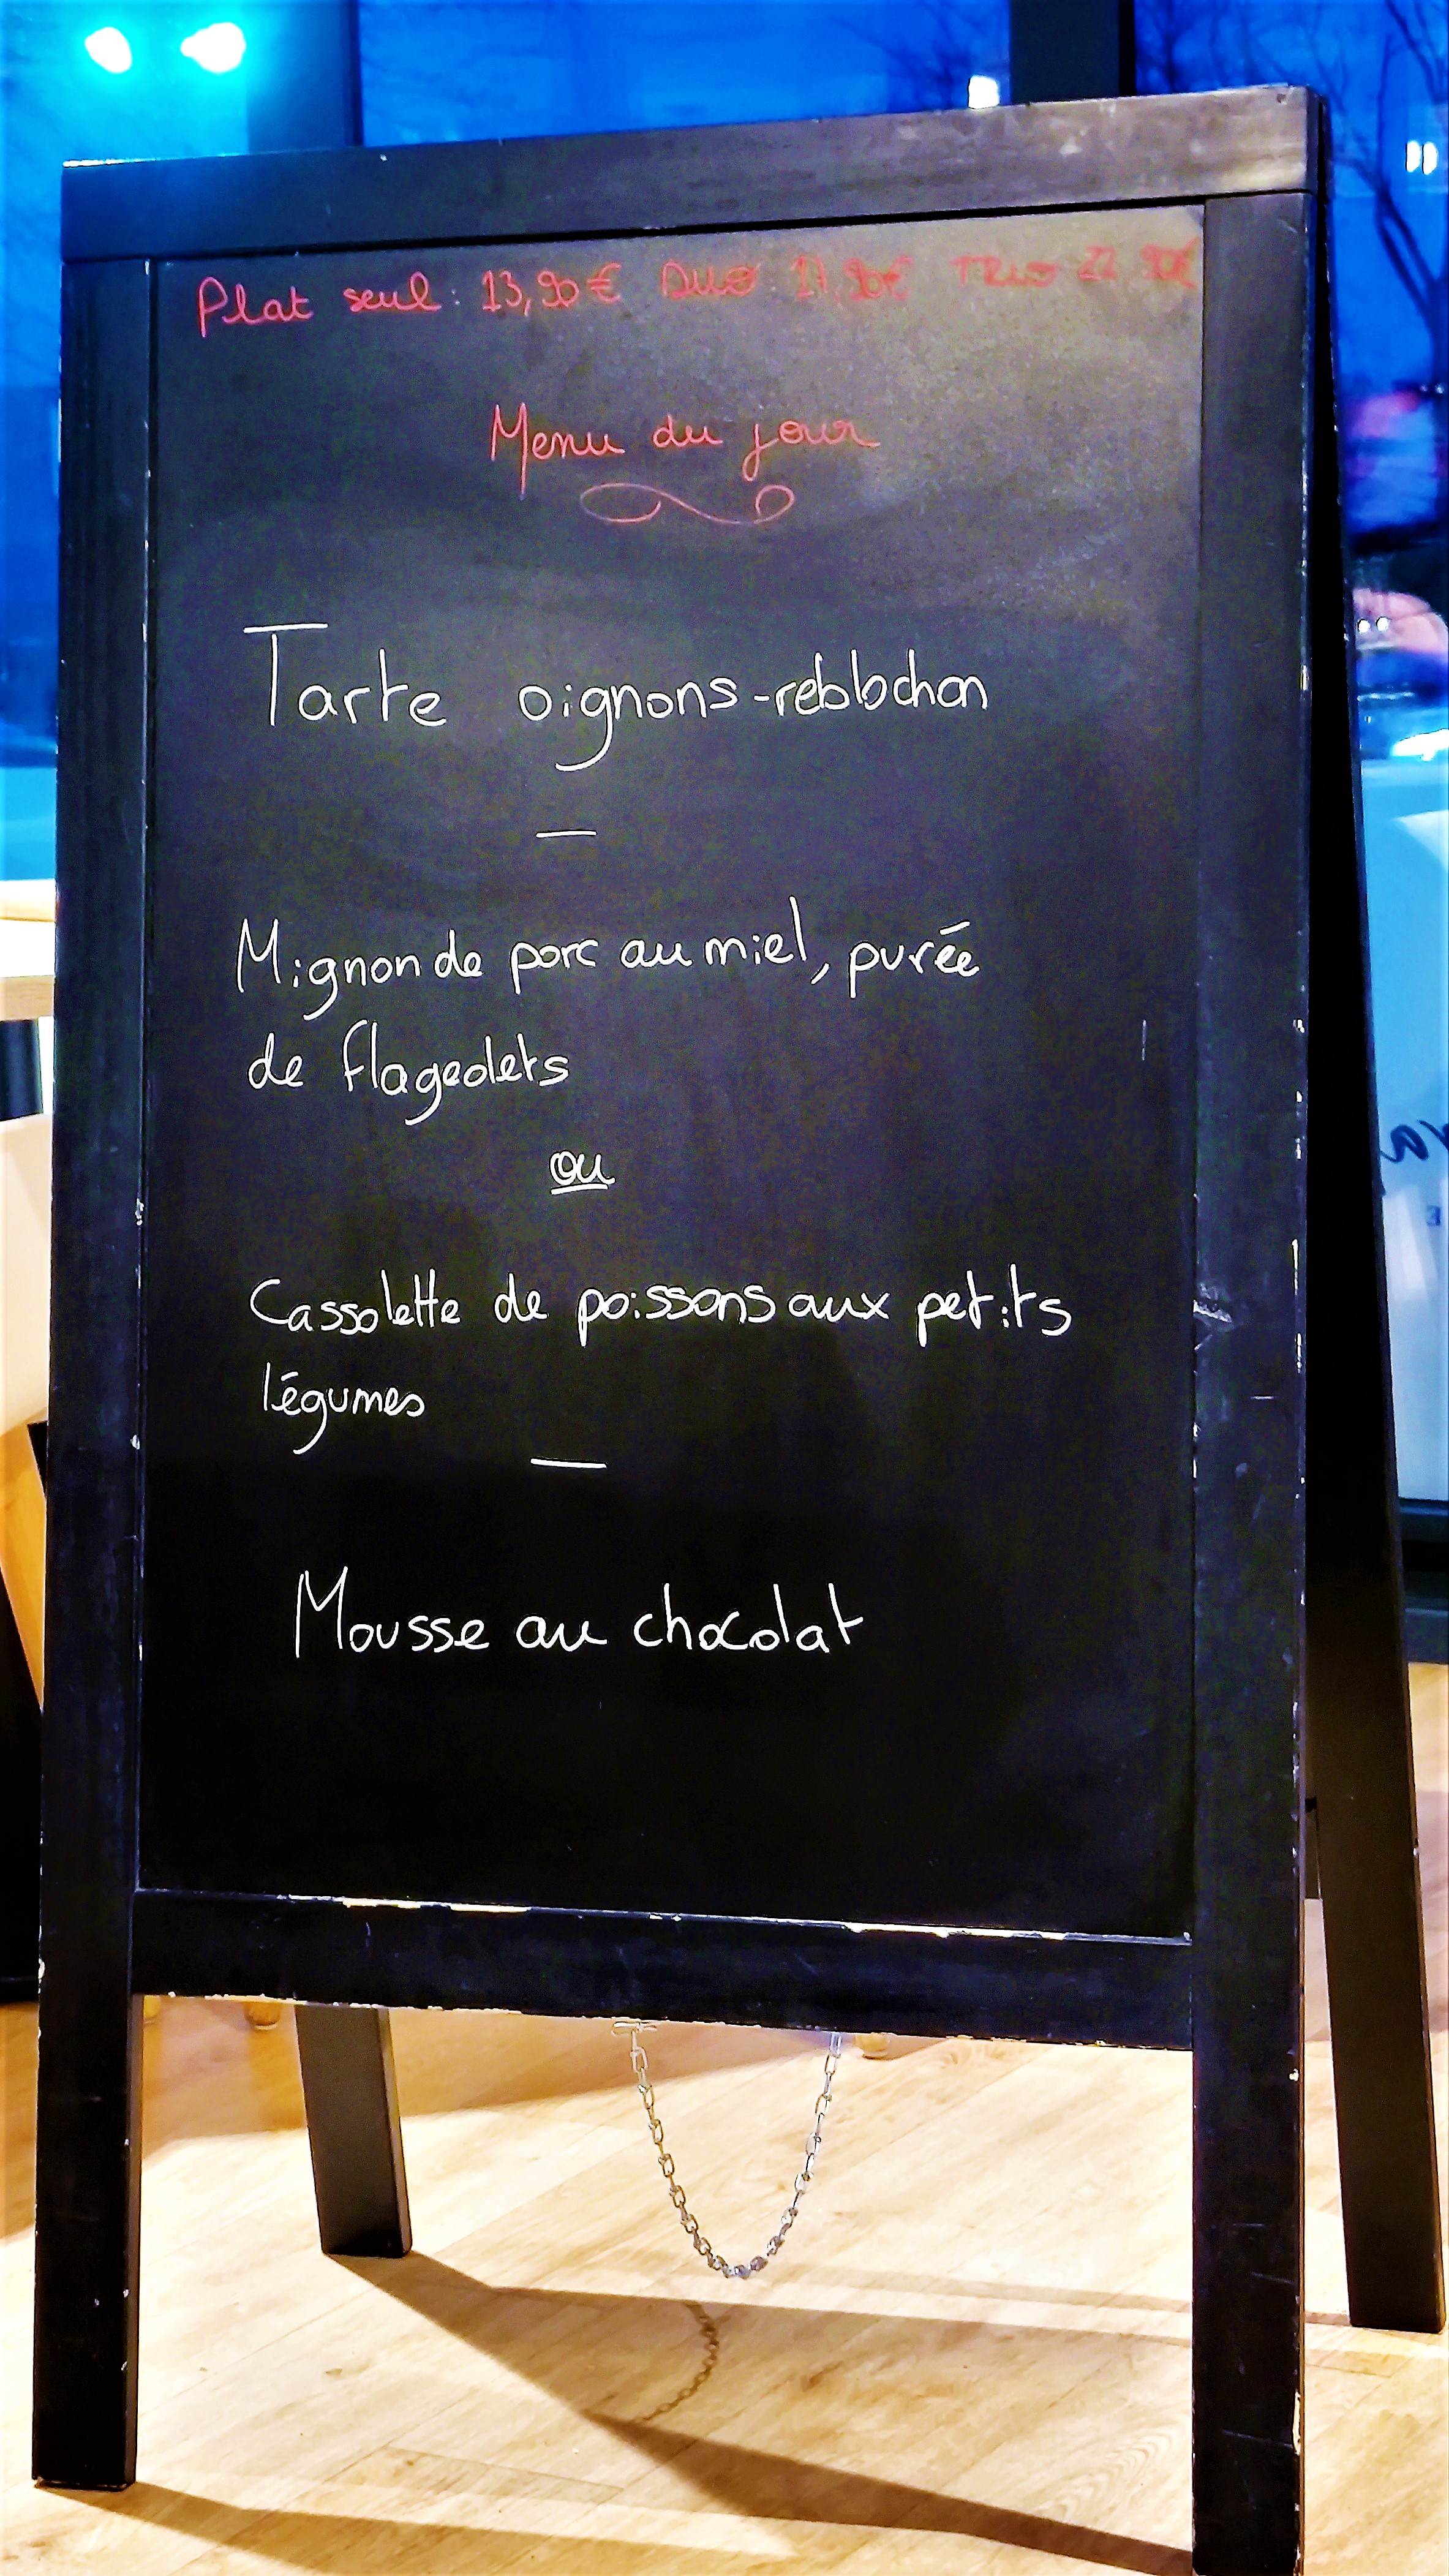 Plat seul : 13,90€ DUO 17,90€ TRIO 22,90€
Menu du jour
Tarte oignons-reblochon
—
Mignon de porc au miel, purée
de flageolets
ou
Cassolette de poissons aux petits
légumes
—
Mousse au chocolat